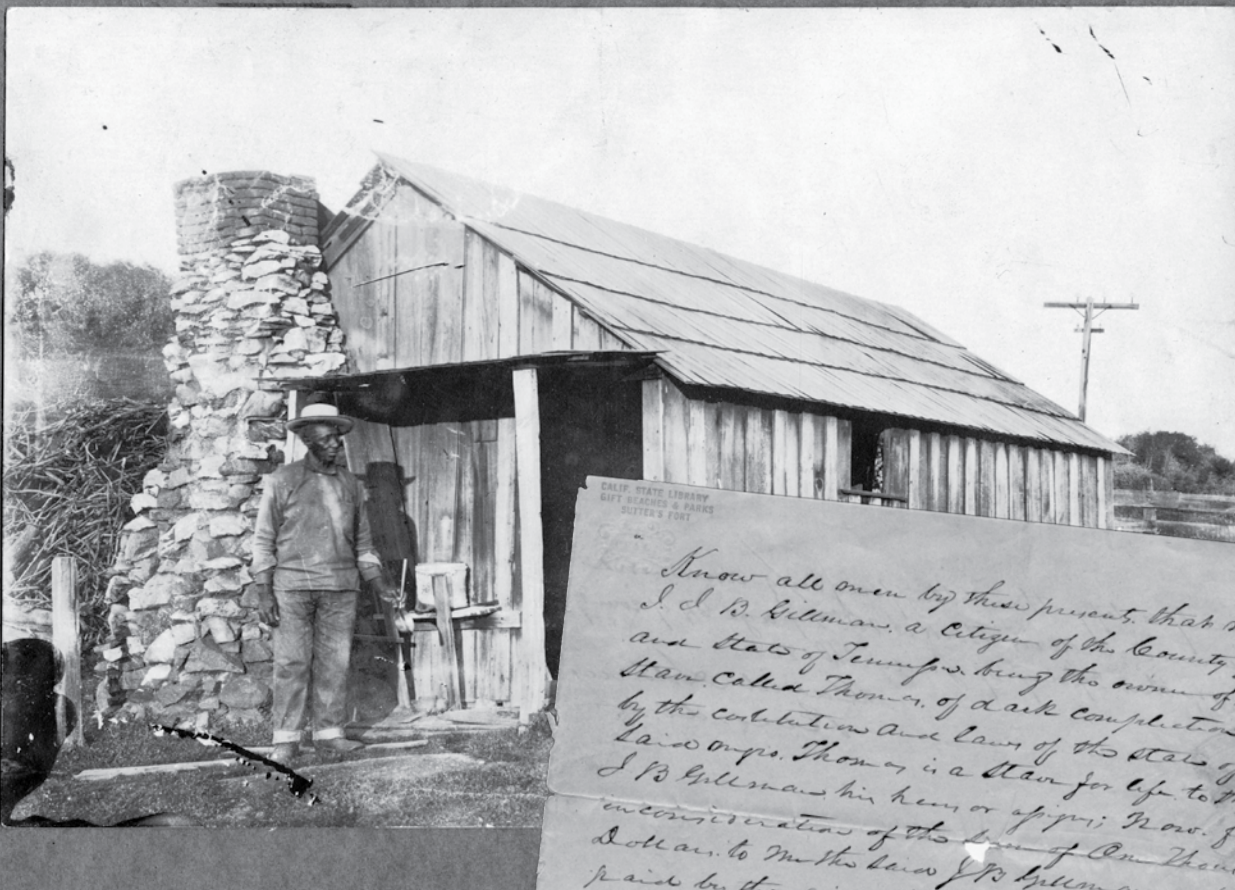 CALIF. STATE LIBRARY
GIFT BEACHES & PARKS
SUTTER'S FORT
Know all men by these presents. that
I. J B. Gillman. a Citizen of the County
and State of Tennessee. being the owner of
Slave. called Thomas, of dark complection
by the costitution and laws of the state of
said negro. Thomas is a Slave for life. to
J B Gillman his heirs or assigns; Now.
in consideration of the sum of One
Dollars. to me the said J B Gillman
paid by